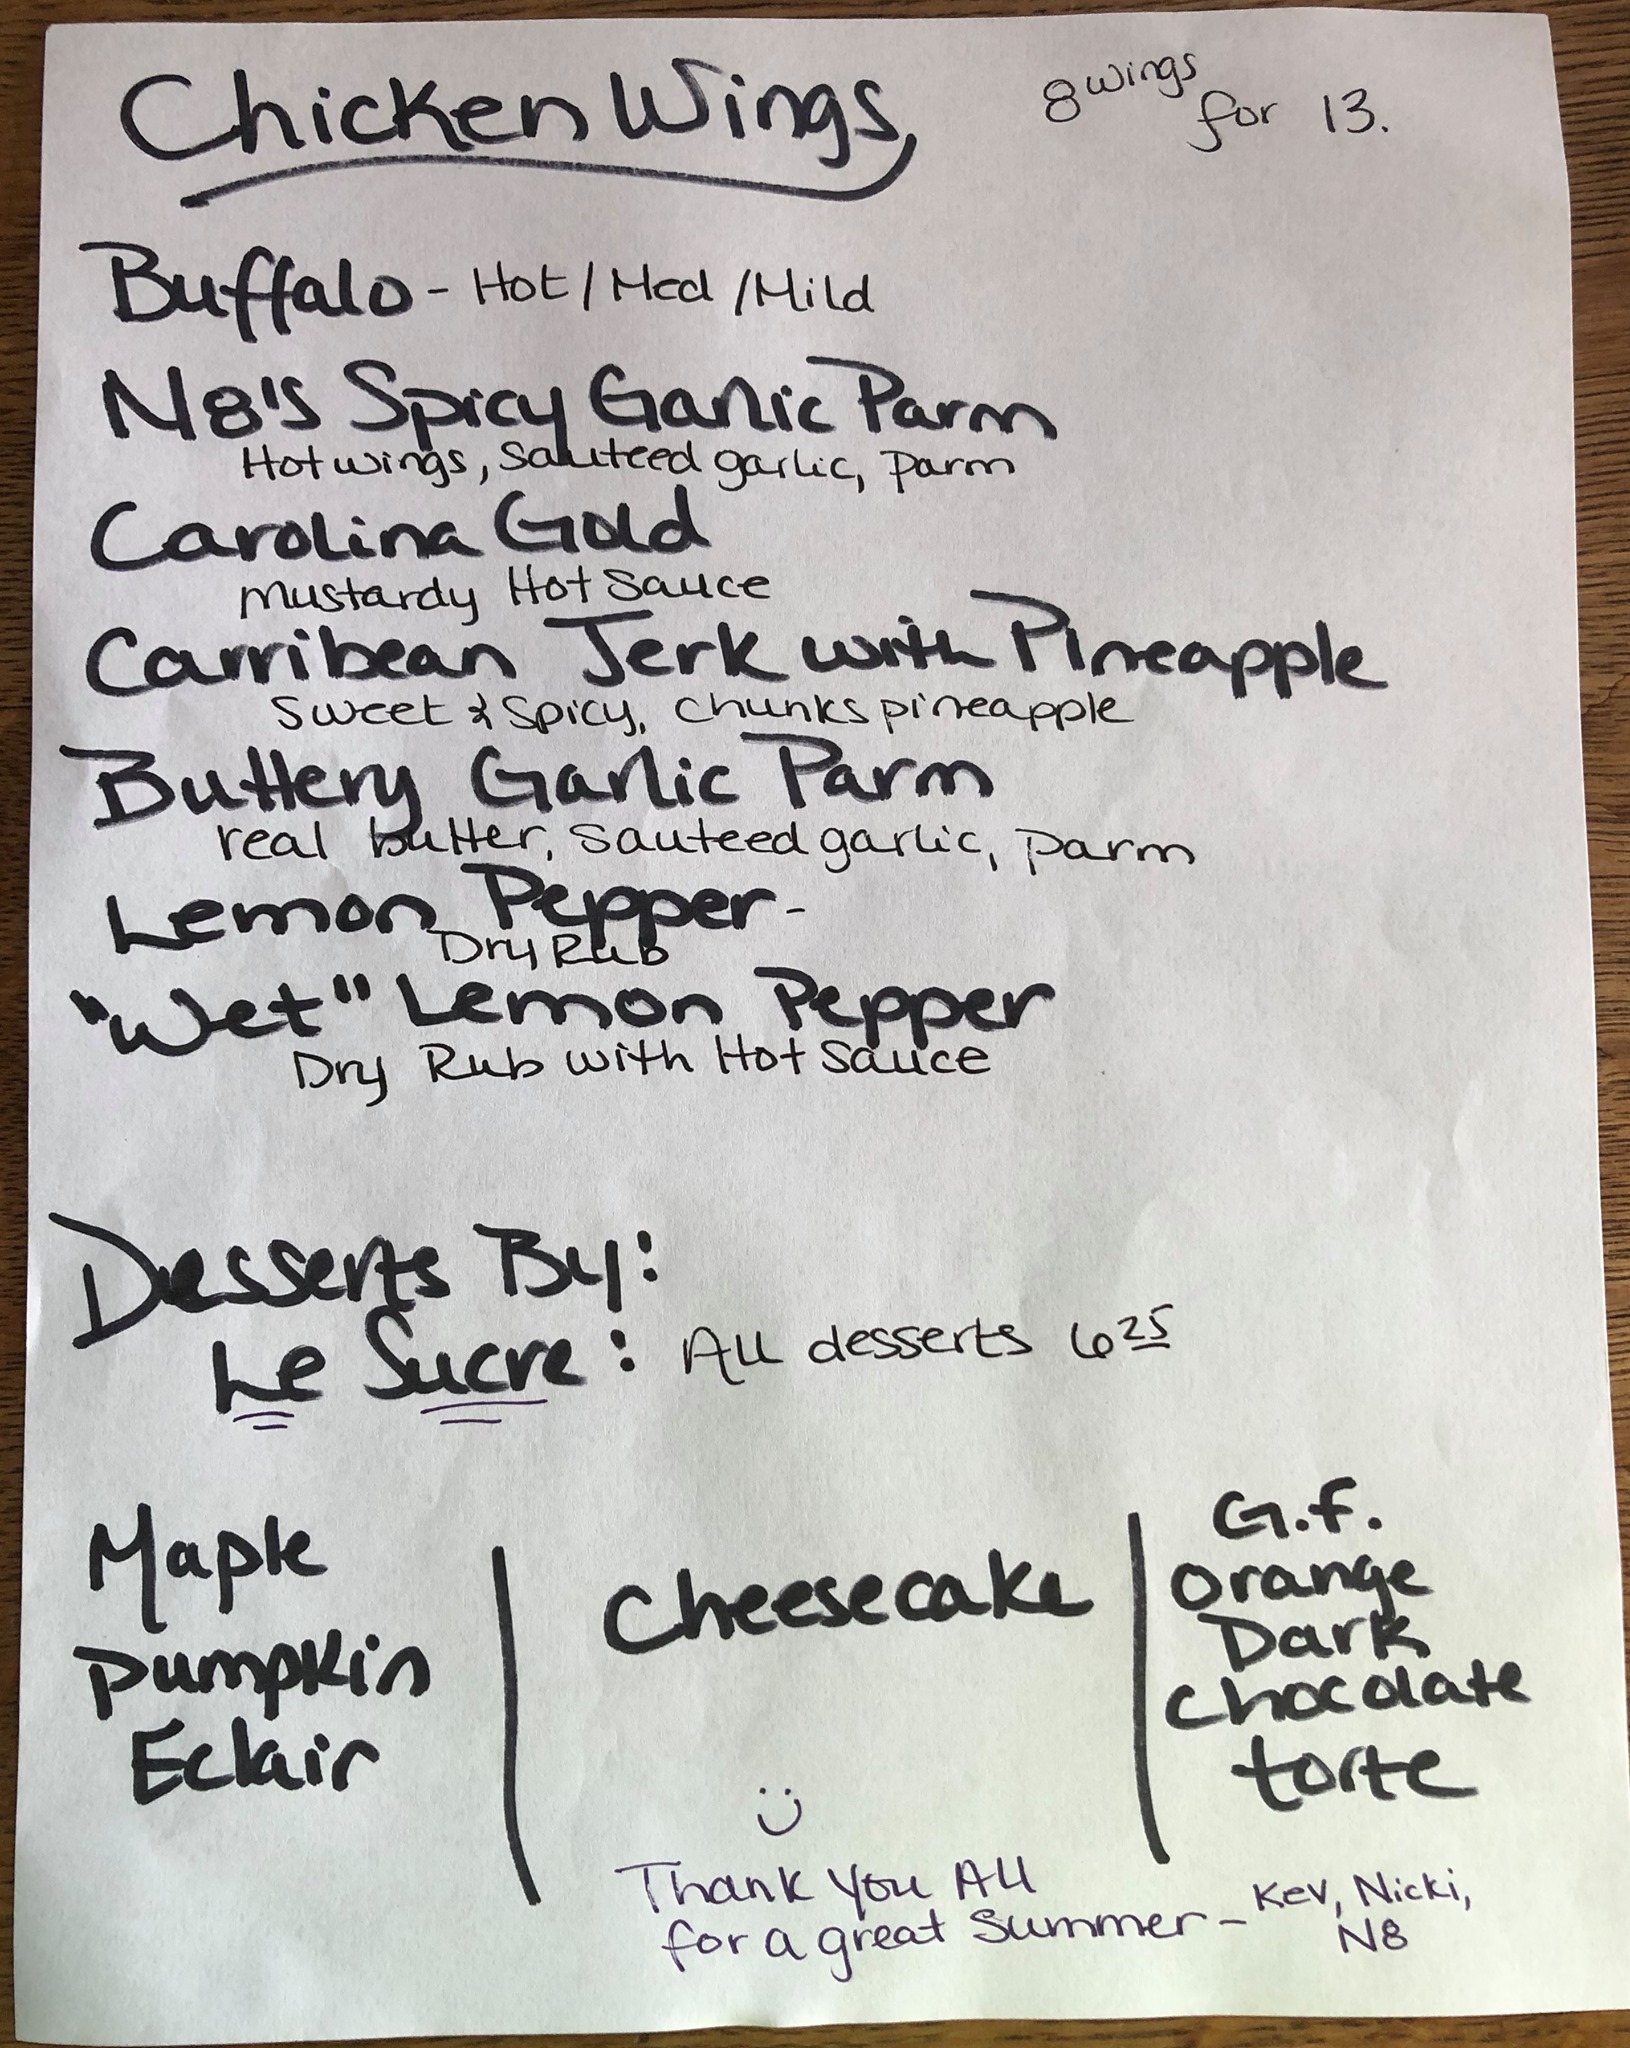 Chicken Wings
8 wings for 13.
Buffalo - Hot / Med / Mild
N8's Spicy Garlic Parm
Hot wings, sauteed garlic, parm
Carolina Gold
Mustardy Hot Sauce
Carribean Jerk with Pineapple
Sweet & Spicy, chunks pineapple
Buttery Garlic Parm
real butter, sauteed garlic, parm
Lemon Pepper -
Dry Rub
"Wet" Lemon Pepper
Dry Rub with Hot Sauce
Desserts By:
Le Sucre: All desserts 6 25
Maple
Pumpkin
Eclair
Cheesecake
G.f.
Orange
Dark
Chocolate
torte
Thank You All
for a great summer - Kev, Nicki,
N8